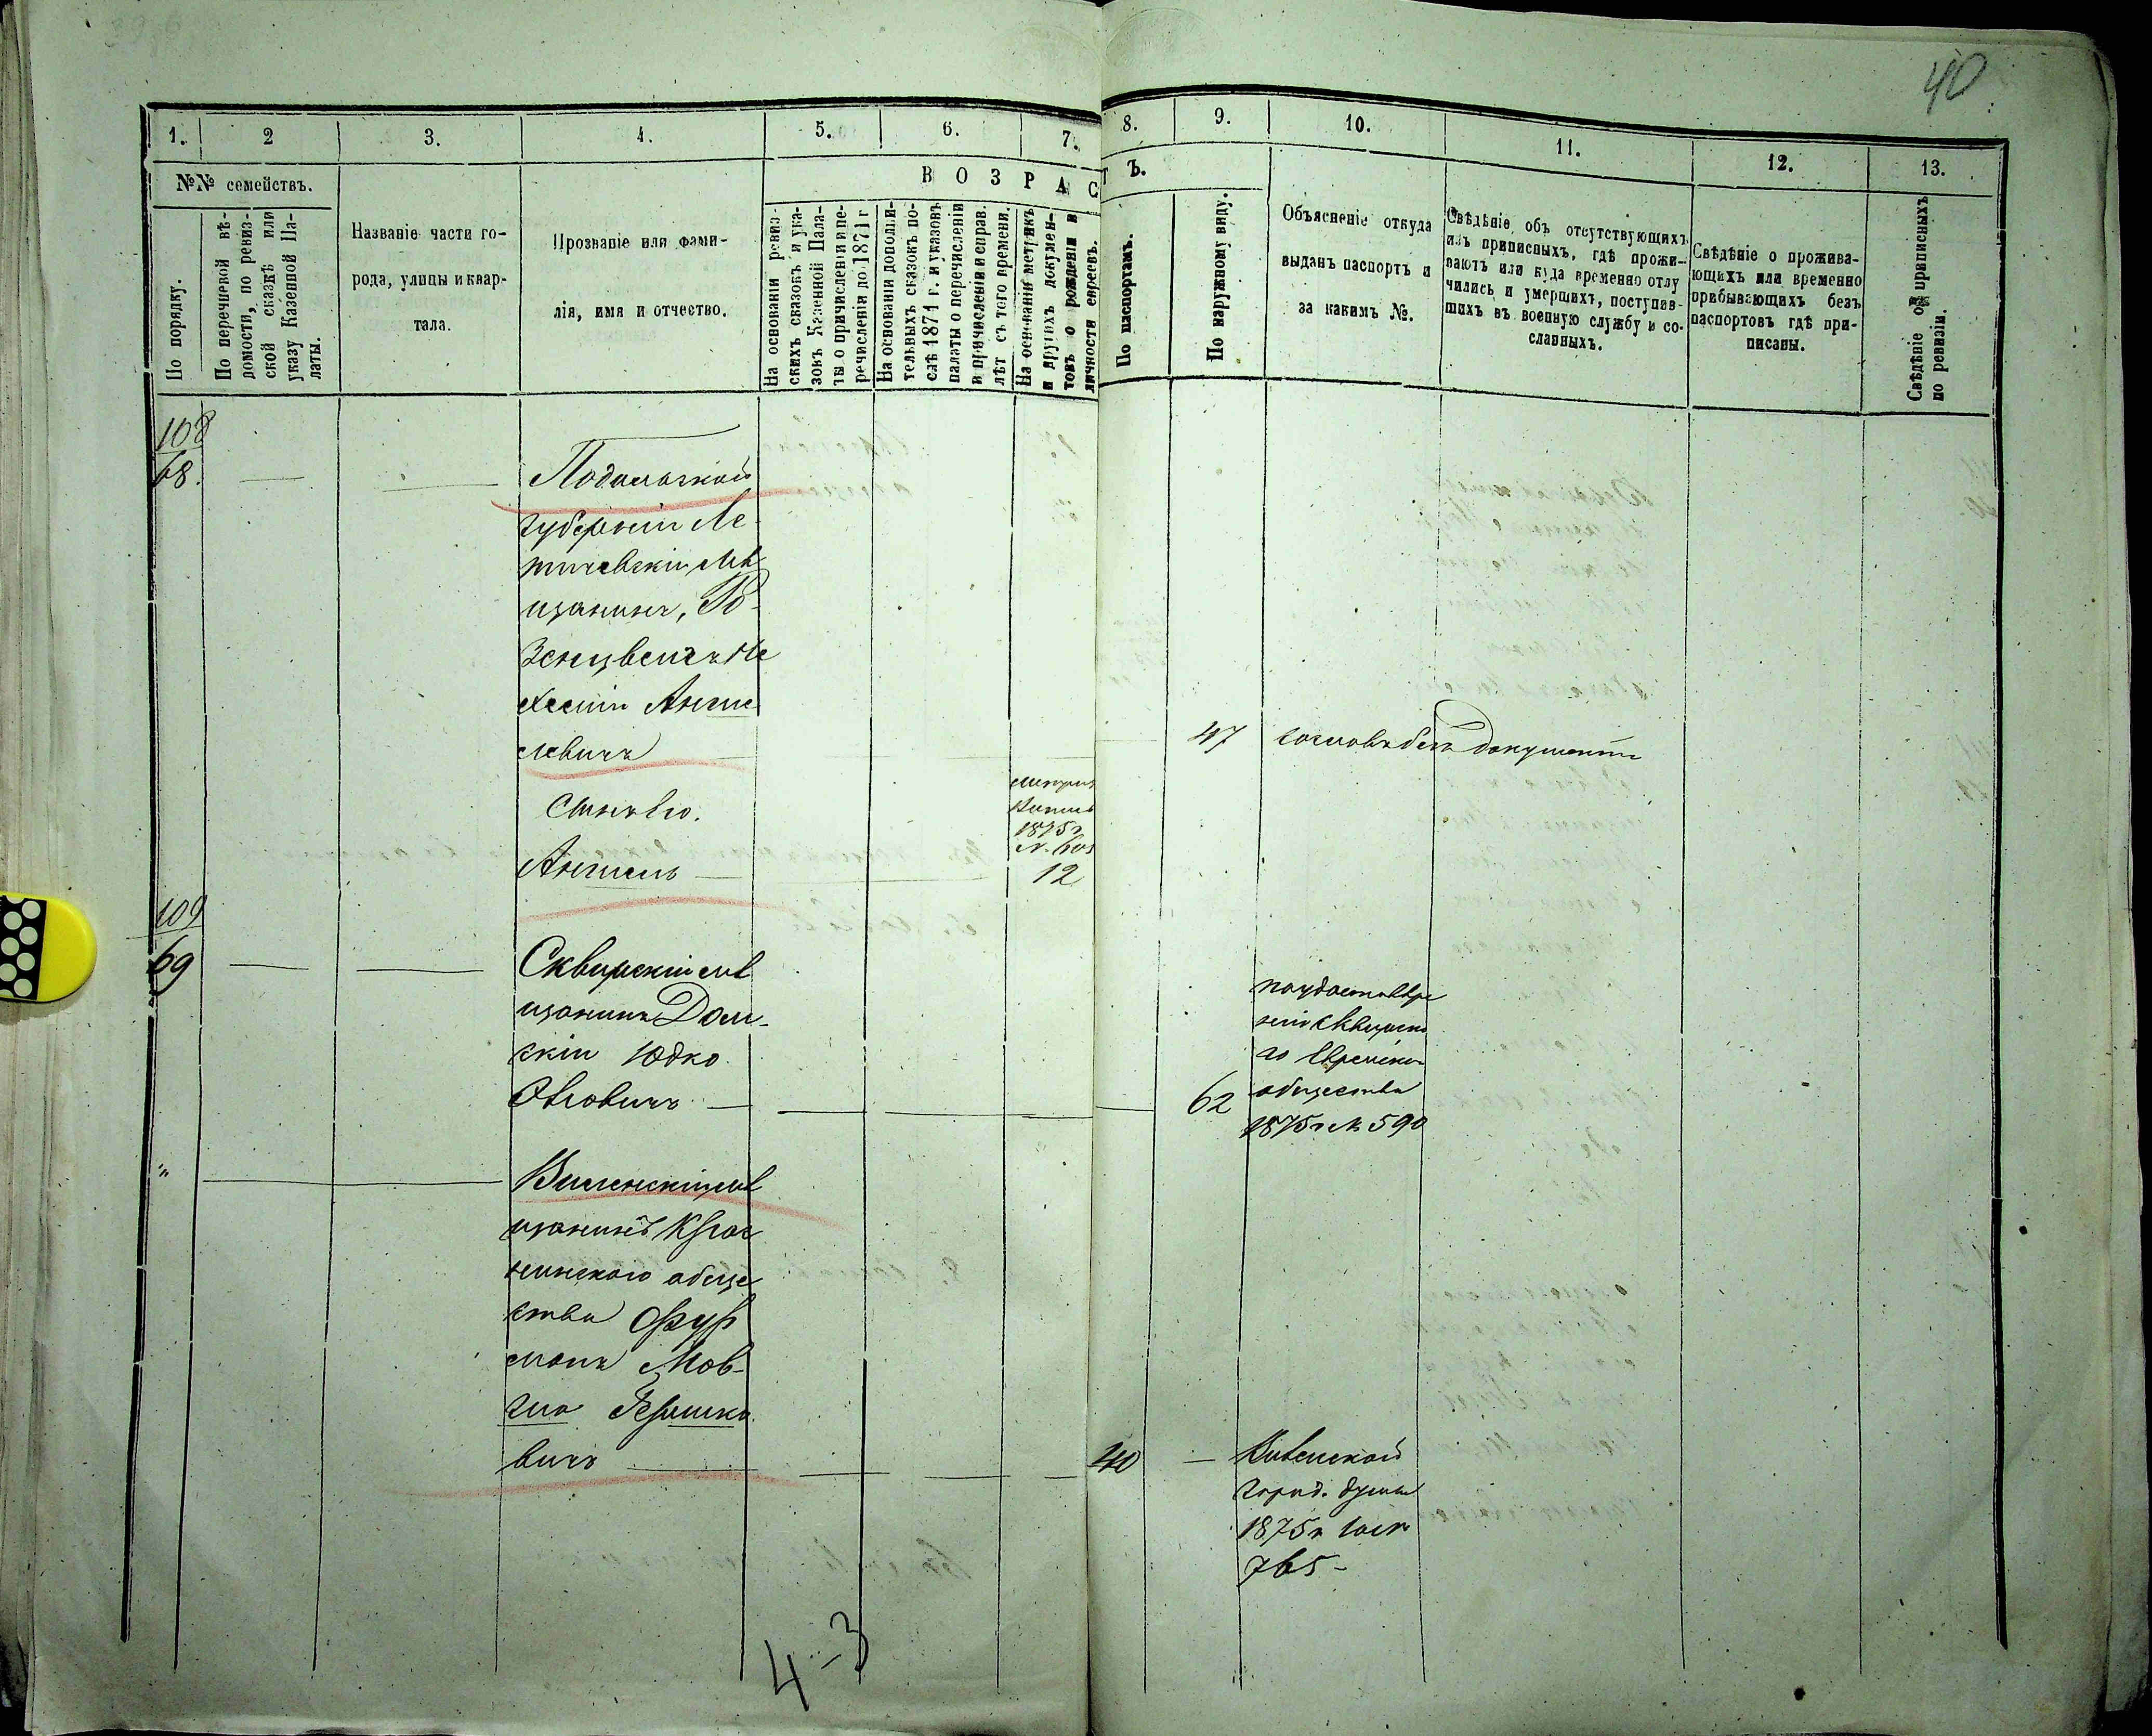 40
1. 2 3. 4. 5. 6. 7. 8. 9. 10. 11. 12. 13.
№№ семействъ.
По порядку.
По перечневой вѣ-
домости, по ревиз-
ской сказкѣ или
указу Казенной Па-
латы.
Названіе части го-
рода, улицы и квар-
тала.
Прозваніе или фами-
лія, имя и отчество.
ВОЗРАСТЪ.
На основаніи ревиз-
скихъ сказокъ и ука-
зовъ Казенной Пала-
ты о причисленіи и пе-
речисленіи до 1871 г
На основаніи дополни-
тельныхъ сказокъ по-
слѣ 1871 г. и указовъ
палаты о перечисленіи
и причисленіи и справ.
лѣт съ того времени.
На основаніи метрикъ
и другихъ докумен-
товъ о рожденіи и
личности евреевъ.
По паспортамъ.
По наружному виду.
Объясненіе откуда
выданъ паспортъ и
за какимъ №.
Свѣдѣніе объ отсутствующихъ
изъ приписныхъ, гдѣ прожи-
ваютъ или куда временно отлу
чились и умершихъ, поступив-
шихъ въ военную службу и со-
сланныхъ.
Свѣдѣніе о прожива-
ющихъ или временно
прибывающихъ безъ
паспортовъ гдѣ при-
писаны.
Свѣдѣніе о приписныхъ
по ревизіи.
108
68.
Подольской
губерніи Ле-
тичевскій мѣ
щанинъ, Ро-
зенцвейгъ
Ангше
левичъ
47
безъ документа
сынъ его.
1875 г
Ангшель
12
109
69
Сквирскій мѣ
щанинъ Дом-
скій Юдко
62
по удостовѣре
нію Сквирска
го Еврейска
общества
1875 г № 590
Виленскій мѣ
щанинъ
общe
ства Фур
манъ Мов-
ша Гершко
вичъ
40
город. думы
1875 г
765-
4-3